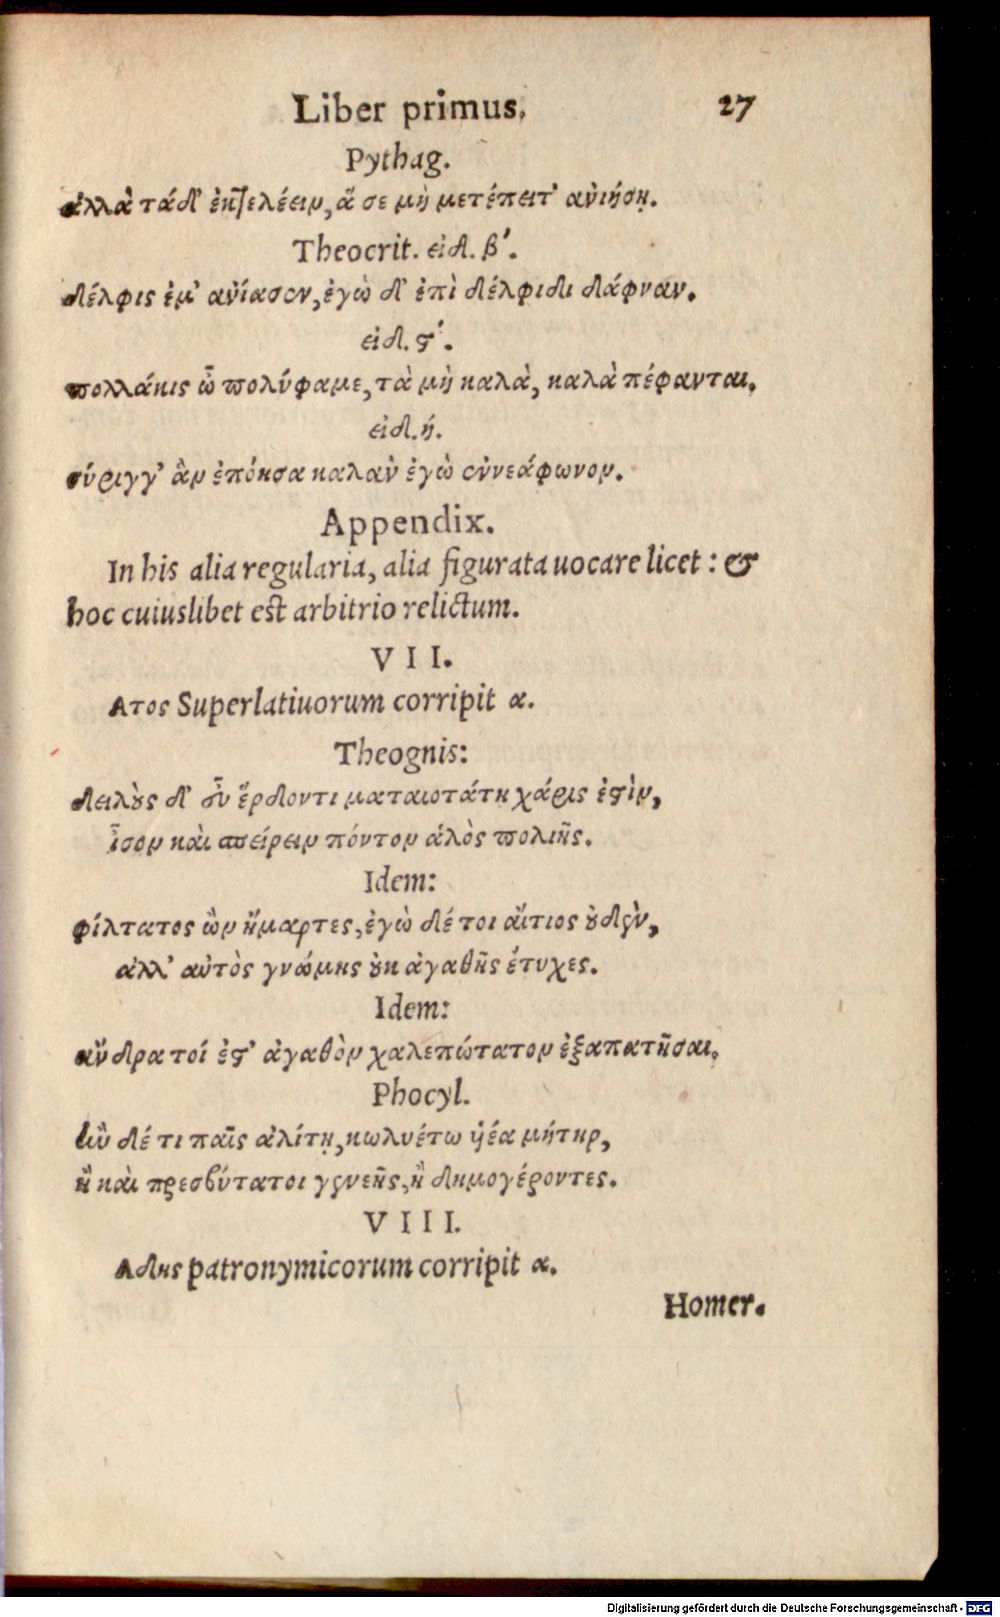 Liber primus. 27
Pythag.
ἀλλὰ τάδ' ἐκτελέειν, ἅ σε μὴ μετέπειτ' ἀνιήσῃ.
Theocrit. εἰδ. β'.
δέλφις ἔμ' ἀνίασεν, ἐγὼ δ' ἐπὶ δέλφιδι δάφναν.
εἰδ. ϛ'.
πολλάκις ὦ πολύφαμε, τὰ μὴ καλὰ, καλὰ πέφανται.
εἰδ. ή.
σύριγγ' ἂν ἐπόησα καλὰν ἐγὼ ἐννεάφωνον.
Appendix.
In his alia regularia, alia figurata uocare licet: &
hoc cuiuslibet est arbitrio relictum.
VII.
Ατος Superlatiuorum corripit α.
Theognis:
δειλοὺς δ' εὖ ἕρδοντι ματαιοτάτη χάρις ἐστὶν,
ἶσον καὶ σπείρειν πόντον ἁλὸς πολιῆς.
Idem:
φίλτατος ὢν ἥμαρτες, ἐγὼ δέ τοι αἴτιος οὐδὲν,
ἀλλ' αὐτὸς γνώμης οὐκ ἀγαθῆς ἔτυχες.
Idem:
ἄνδρα τοί ἐστ' ἀγαθὸν χαλεπώτατον ἐξαπατῆσαι.
Phocyl.
ἢν δέ τι παῖς ἀλίτῃ, κωλυέτω ὑέα μήτηρ,
ἢ καὶ πρεσβύτατοι γενεῆς, ἢ δημογέροντες.
VIII.
Αδης patronymicorum corripit α.
Homer.
Digitalisierung gefördert durch die Deutsche Forschungsgemeinschaft - DFG